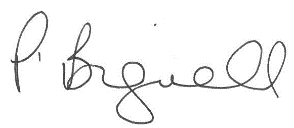 P. Bignell